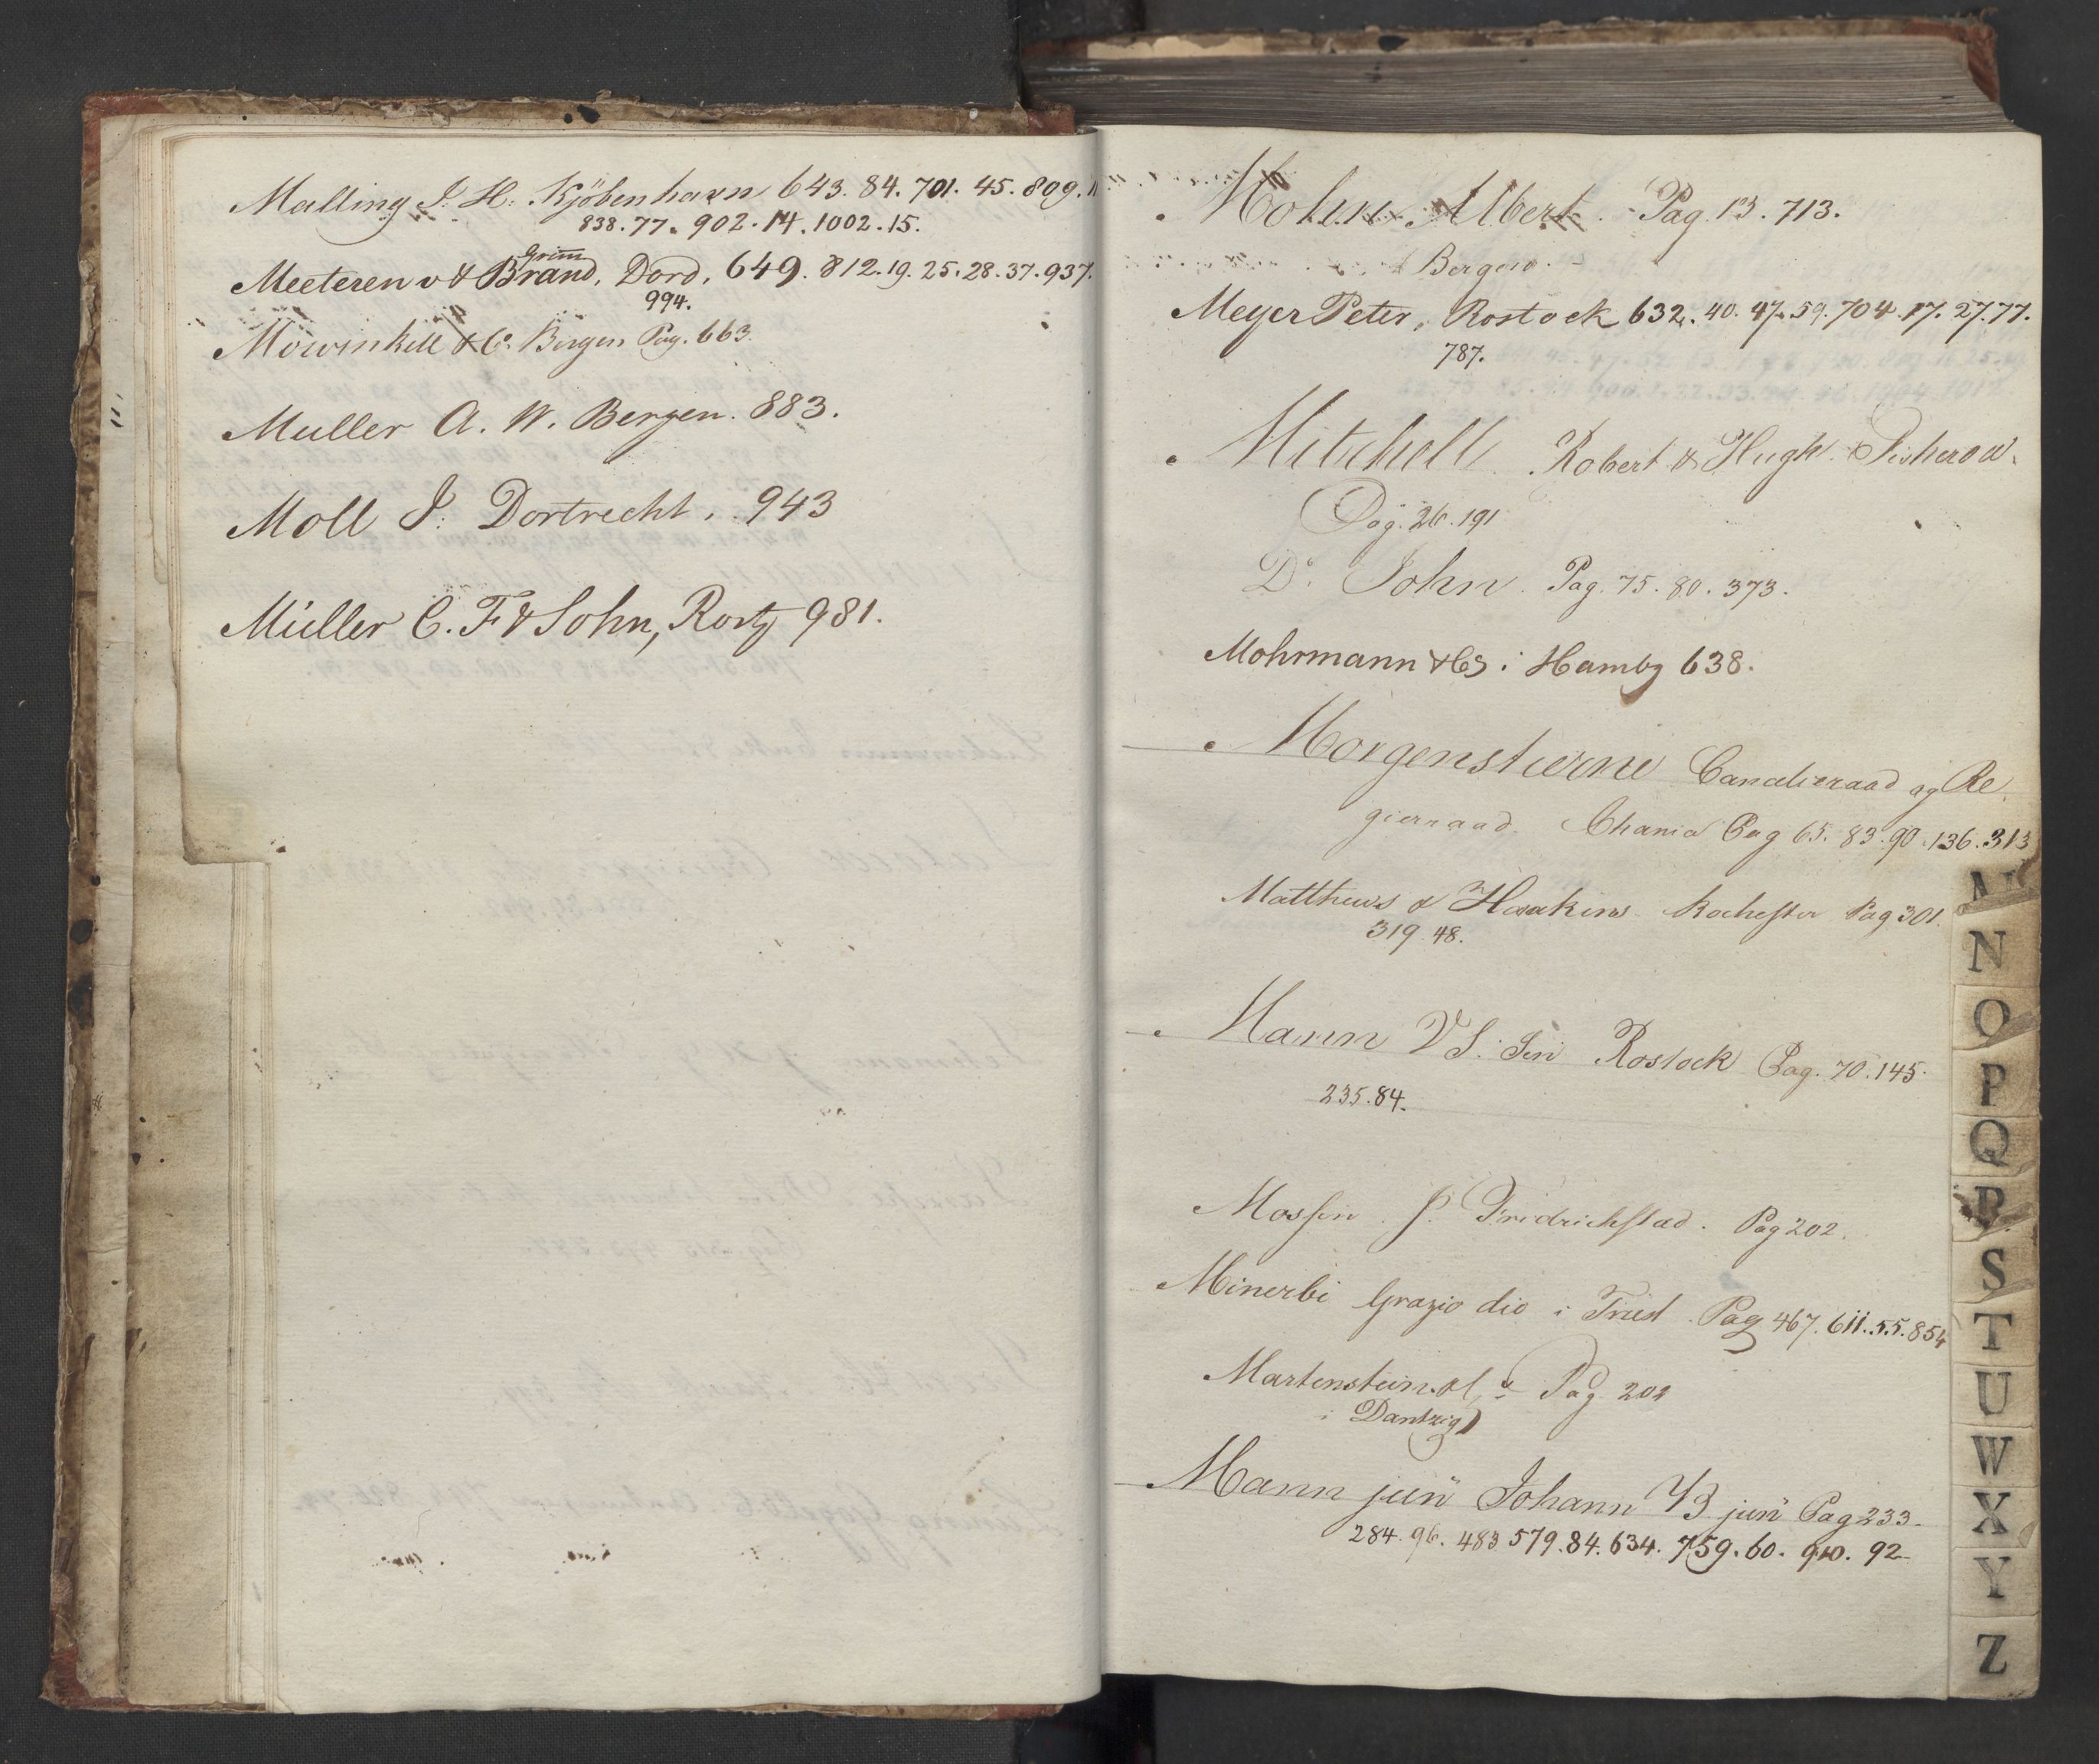 Malling J. H. Kjöbenhavn 643. 84. 701. 45. 809. 11
838. 77. 902. 14. 1002. 15.
Grim
Meeteren v & Brand, Dord, 649. 812. 19. 25. 28. 37. 937.
994.
Mowinkell & Co. Bergen Pag. 663.
Muller A. W. Bergen. 883.
Moll J. Dortrecht. 943
Müller C. F & Sohn, Rostz 981.
Mohn, Albert. Pag. 13. 713.
Bergen.
Meyer Peter, Rostock 632. 40. 47. 59. 704. 17. 27. 77.
787.
Mitchell Robert & Hugh Fisherow.
Pag. 26. 191
Do. John. Pag. 75. 80. 373.
Mohrmann & Co i Hambg 638.
Morgenstierne Cancelieraad og Re
gierraad Chania Pag 65. 83. 90. 136. 313
Matthews & Hoakins Rochester Pag 301.
319. 48.
Mann V S. Sen Rostock Pag. 70. 145.
235. 84.
Mossin J. Fridrichstad. Pag 202.
Minerbi Grazio dio i Triest Pag 467. 611. 55. 854
Martenstein Pag. 202
i Dantzig
Mann jun Johann jun Pag 233.
284. 96. 483 579. 84. 634. 759. 60. 910. 92
M
N
O
P
Q
R
S
T
U
W
X
Y
Z